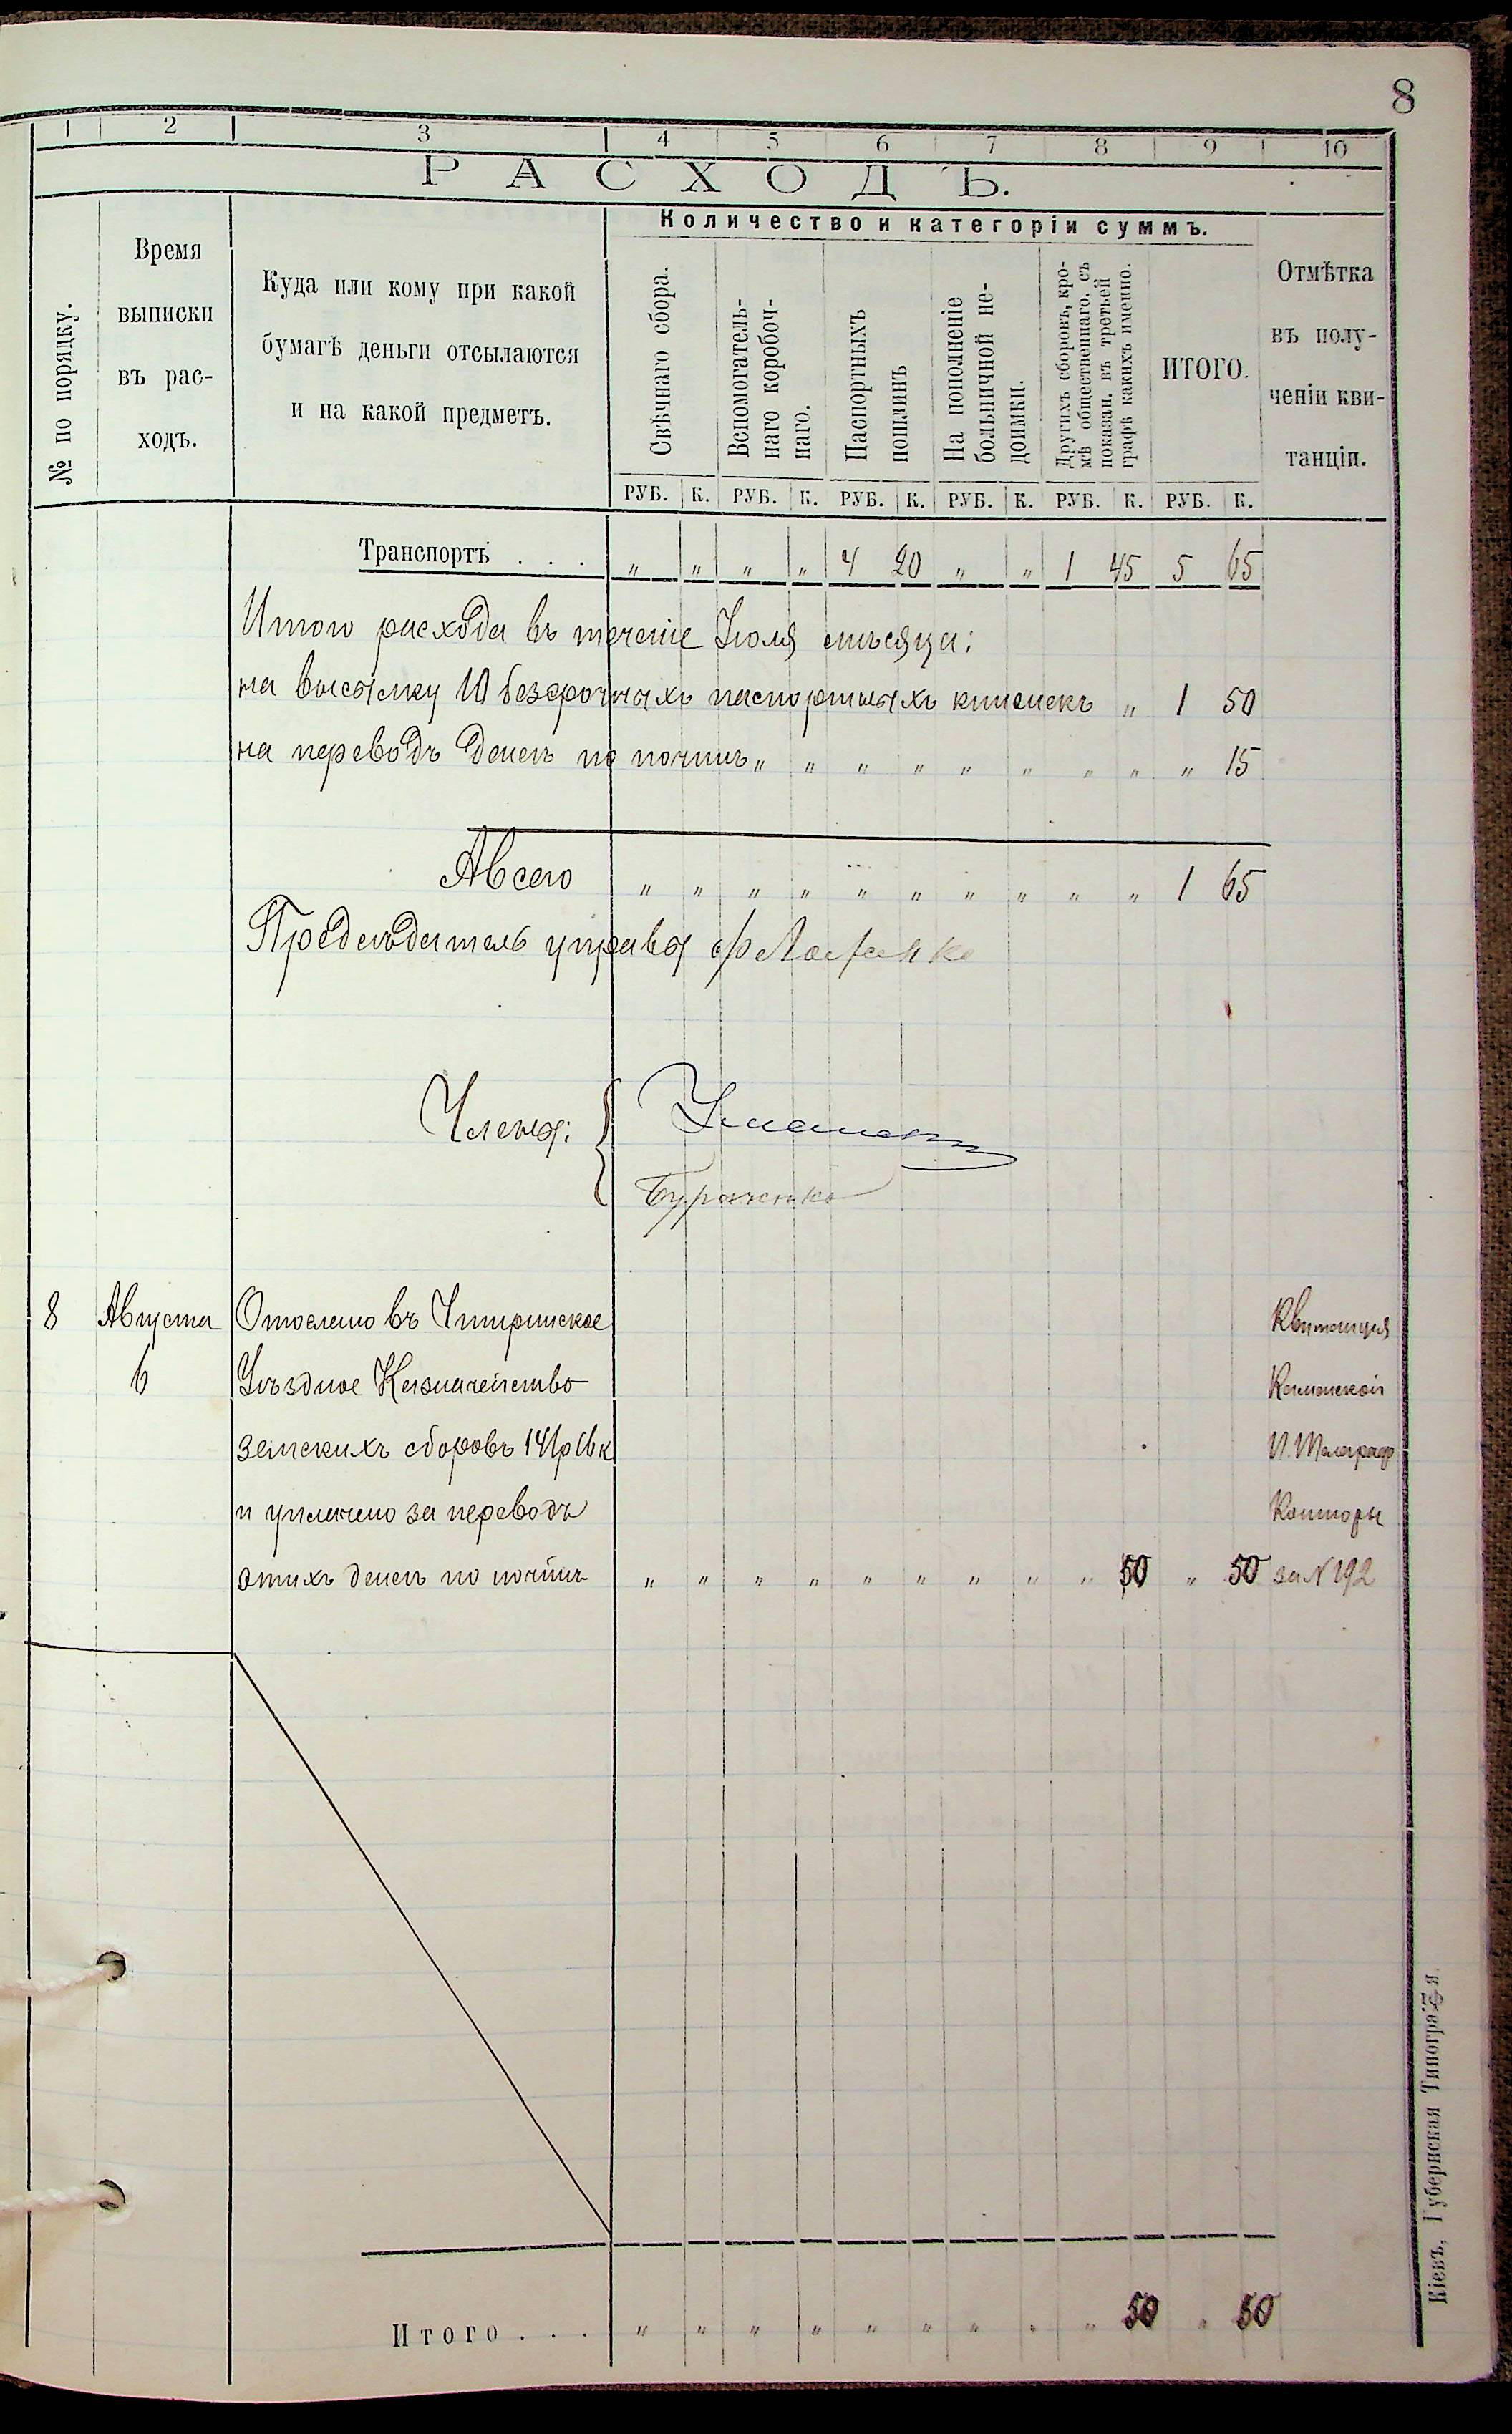 8
1 2 3 4 5 6 7 8 9 10
РАСХОДЪ.
№ по порядку.
Время
выписки
въ рас-
ходъ.
Куда или кому при какой
бумагѣ деньги отсылаются
и на какой предметъ.
Количество и категоріи суммъ.
Свѣчнаго сбора.
Вспомогатель-
наго коробоч-
наго.
Паспортныхъ
пошлинъ
На пополненіе
больничной не-
доимки.
Другихъ сборовъ, кро-
мѣ общественнаго. съ
показан. въ третьей
графѣ какихъ именно.
ИТОГО.
Отмѣтка
въ полу-
ченіи кви-
танціи.
РУБ. К. РУБ. К. РУБ. К. РУБ. К. РУБ. К. РУБ. К.
Транспортъ . . . " " " " 4 20 " " 1 45 5 65
Итого расхода въ теченіе Іюля мѣсяца:
на высылку 10 безсрочныхъ паспортныхъ книжекъ " 1 50
на переводъ денегъ по почтѣ " " " " " " " " " 15
А всего " " " " " " " " " " 1 65
Предсѣдатель управы
Члены:
Бураченко
8 Августа Отослано въ Чигиринское Квитанция
6 Уѣздное Казначейство Каменской
земскихъ сборовъ 141р 16к П. Телеграф
и уплачено за переводъ Конторы
этихъ денегъ по почтѣ " " " " " " " " " 50 " 50 за №192
Итого . . . " " " " " " " " " 50 " 50
Кіевъ, Губернская Типографія.